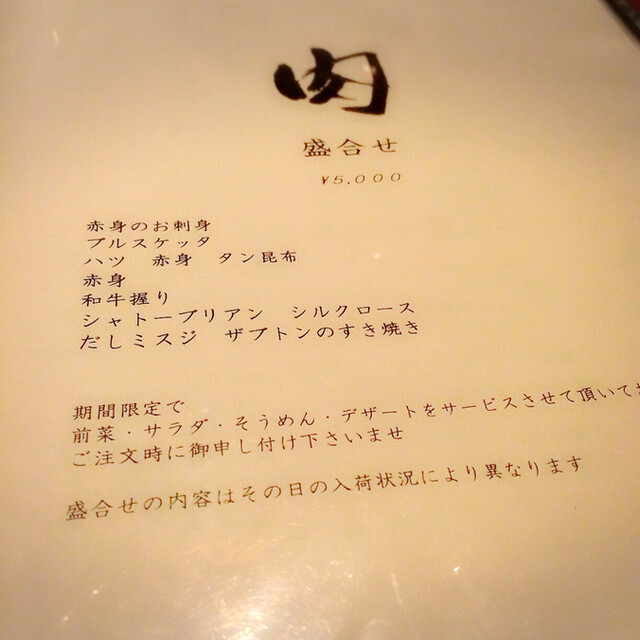 肉
盛合せ
¥5,000
赤身のお刺身
ブルスケッタ
ハツ　赤身　タン昆布
赤身
和牛握り
シャトーブリアン　シルクロース
だしミスジ　ザブトンのすき焼き
期間限定で
前菜・サラダ・そうめん・デザートをサービスさせて頂いて
ご注文時に御申し付け下さいませ
盛合せの内容はその日の入荷状況により異なります